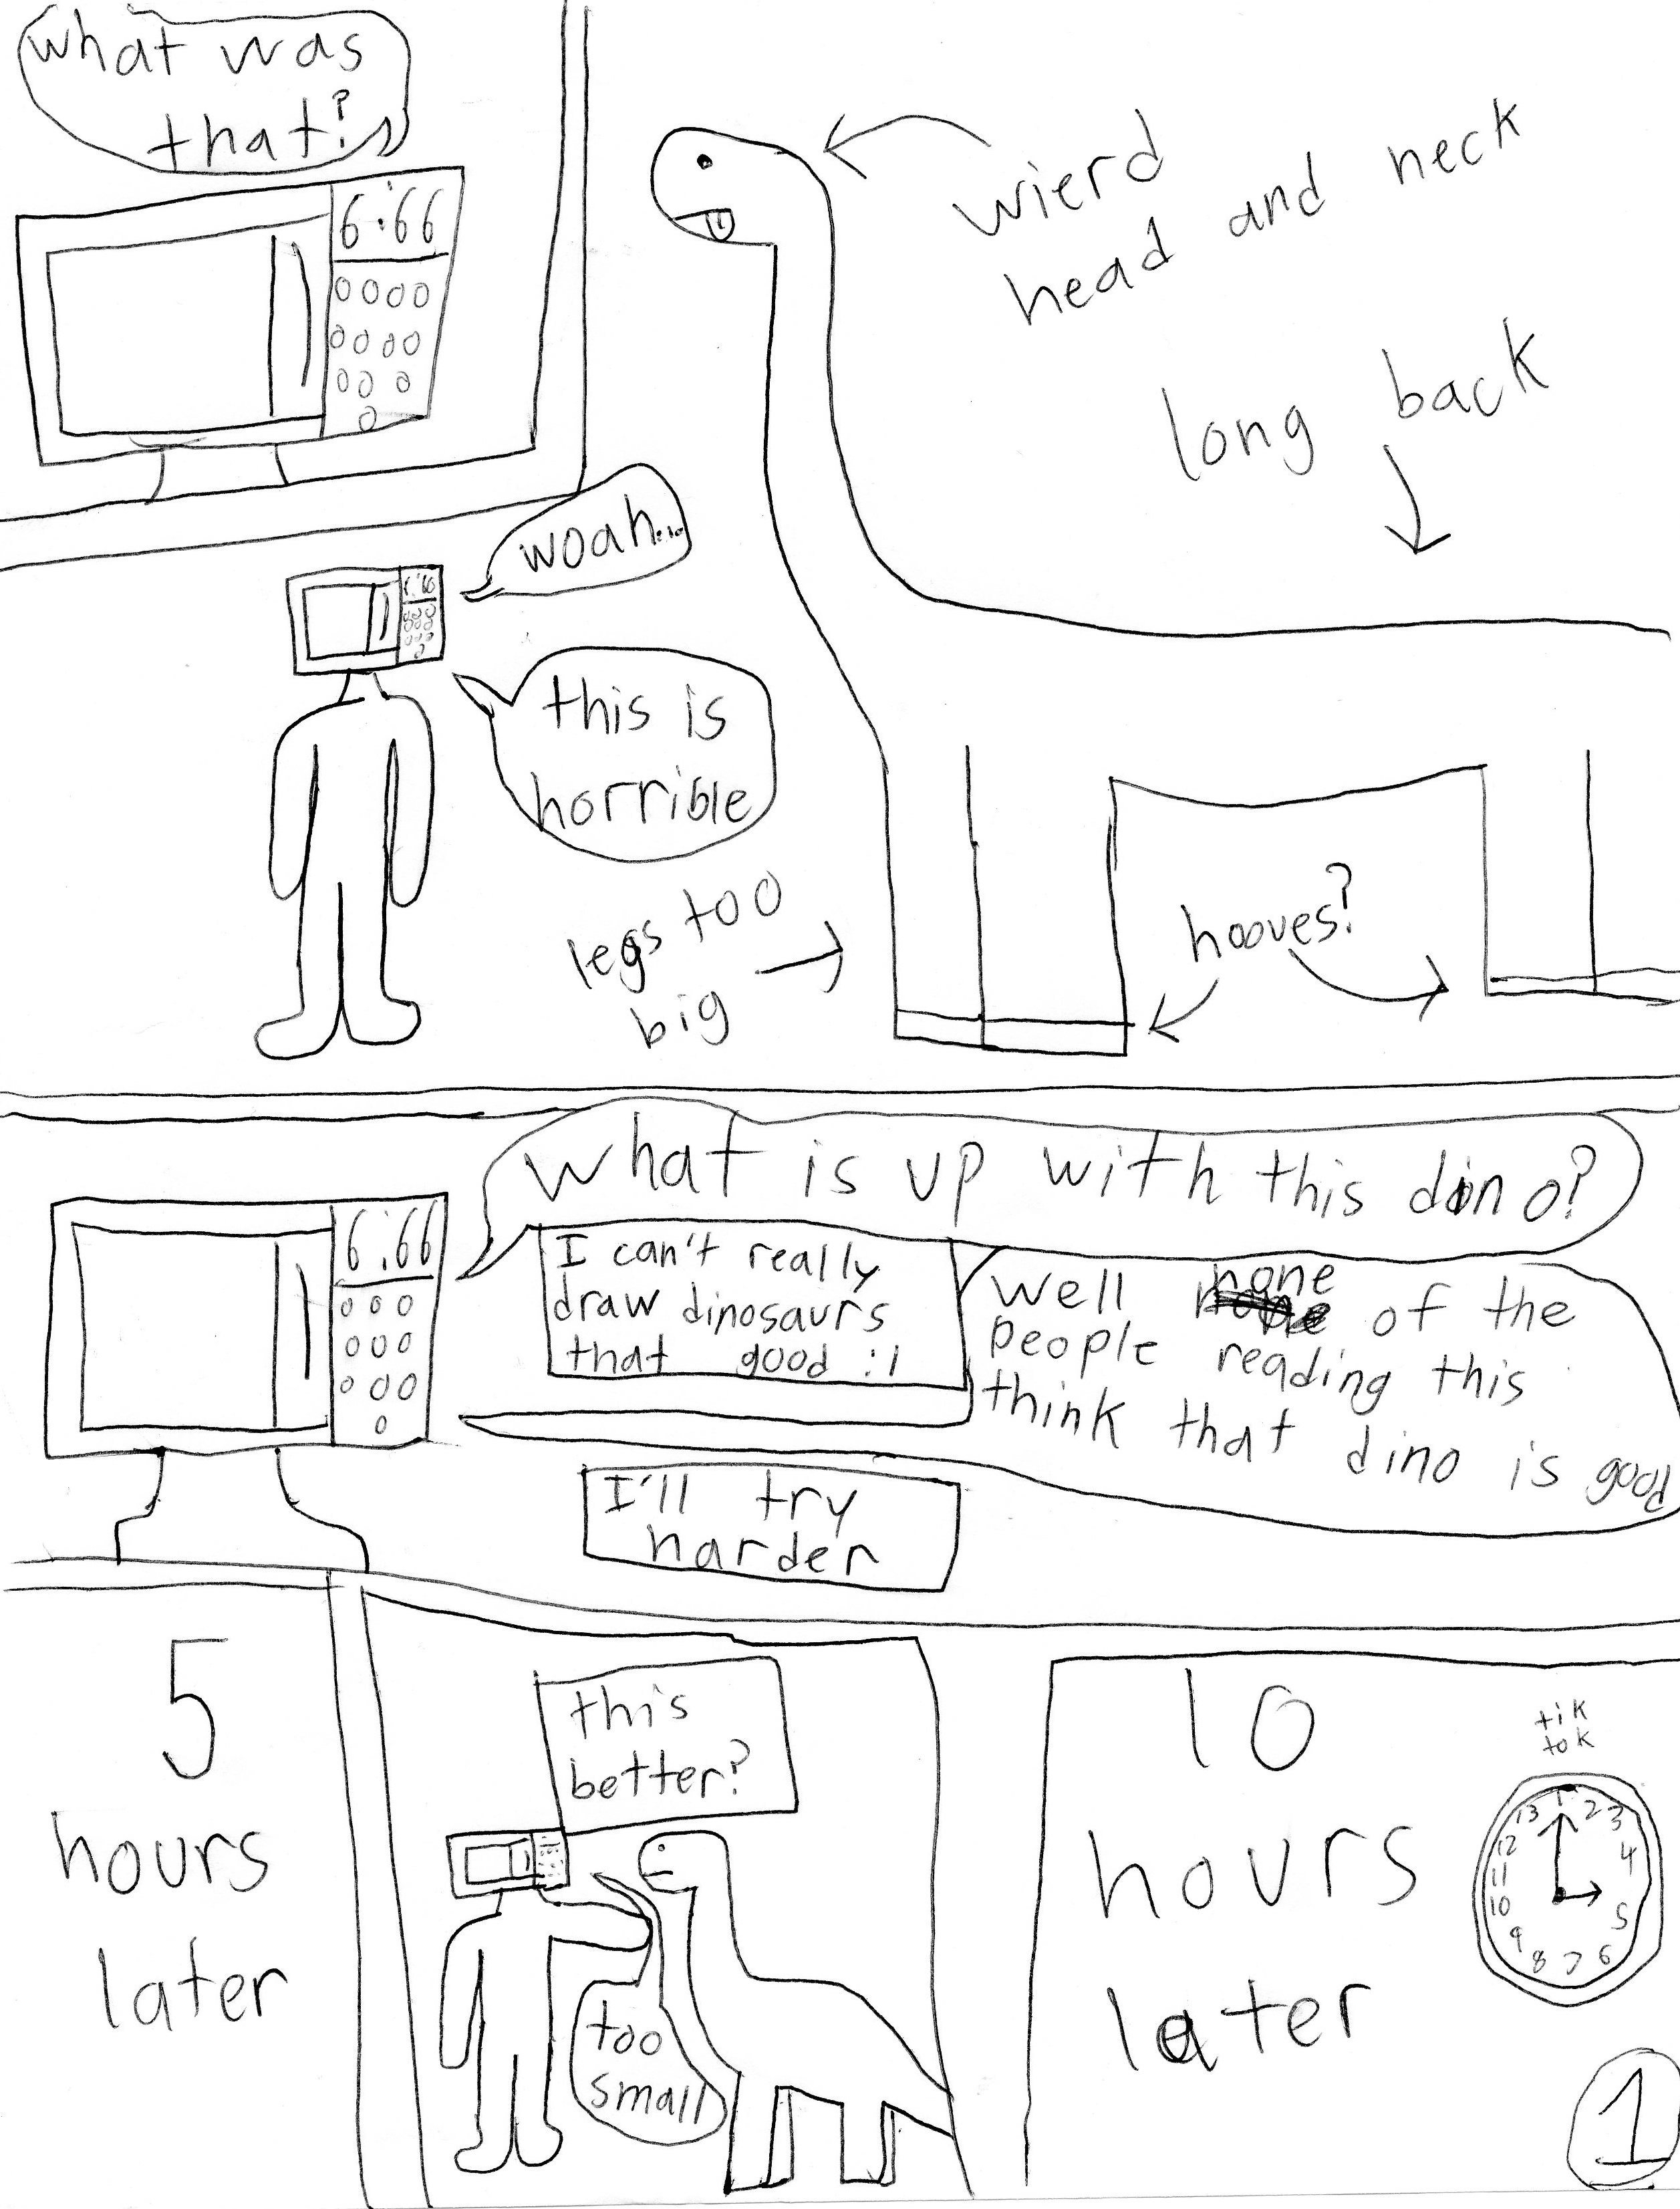 what was
that?
6:66
wierd
head and neck
long back
woah...
this is
horrible
legs too
big
hooves?
What is up with this dino?
6:66
I can't really
draw dinosaurs
that good :|
Well none of the
people reading this
think that dino is good
I'll try
harder
5
hours
later
this
better?
too
small
10
hours
later
tik
tok
1
2
3
4
5
6
7
8
9
10
11
12
13
1